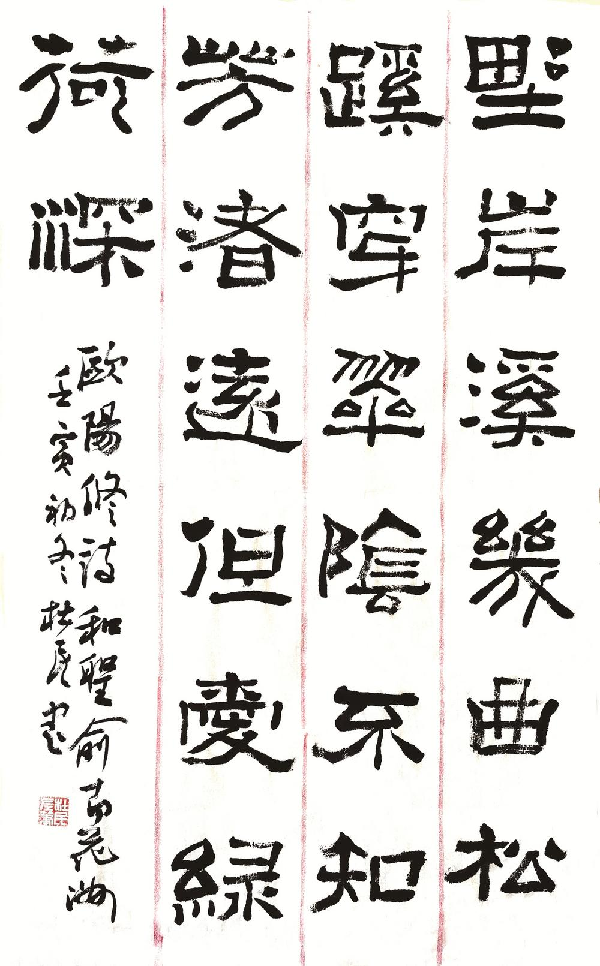 野岸溪幾曲松
蹊穿翠陰不知
芳渚遠但愛綠
荷深
歐陽修詩和聖俞百花洲
壬寅初冬杜民書